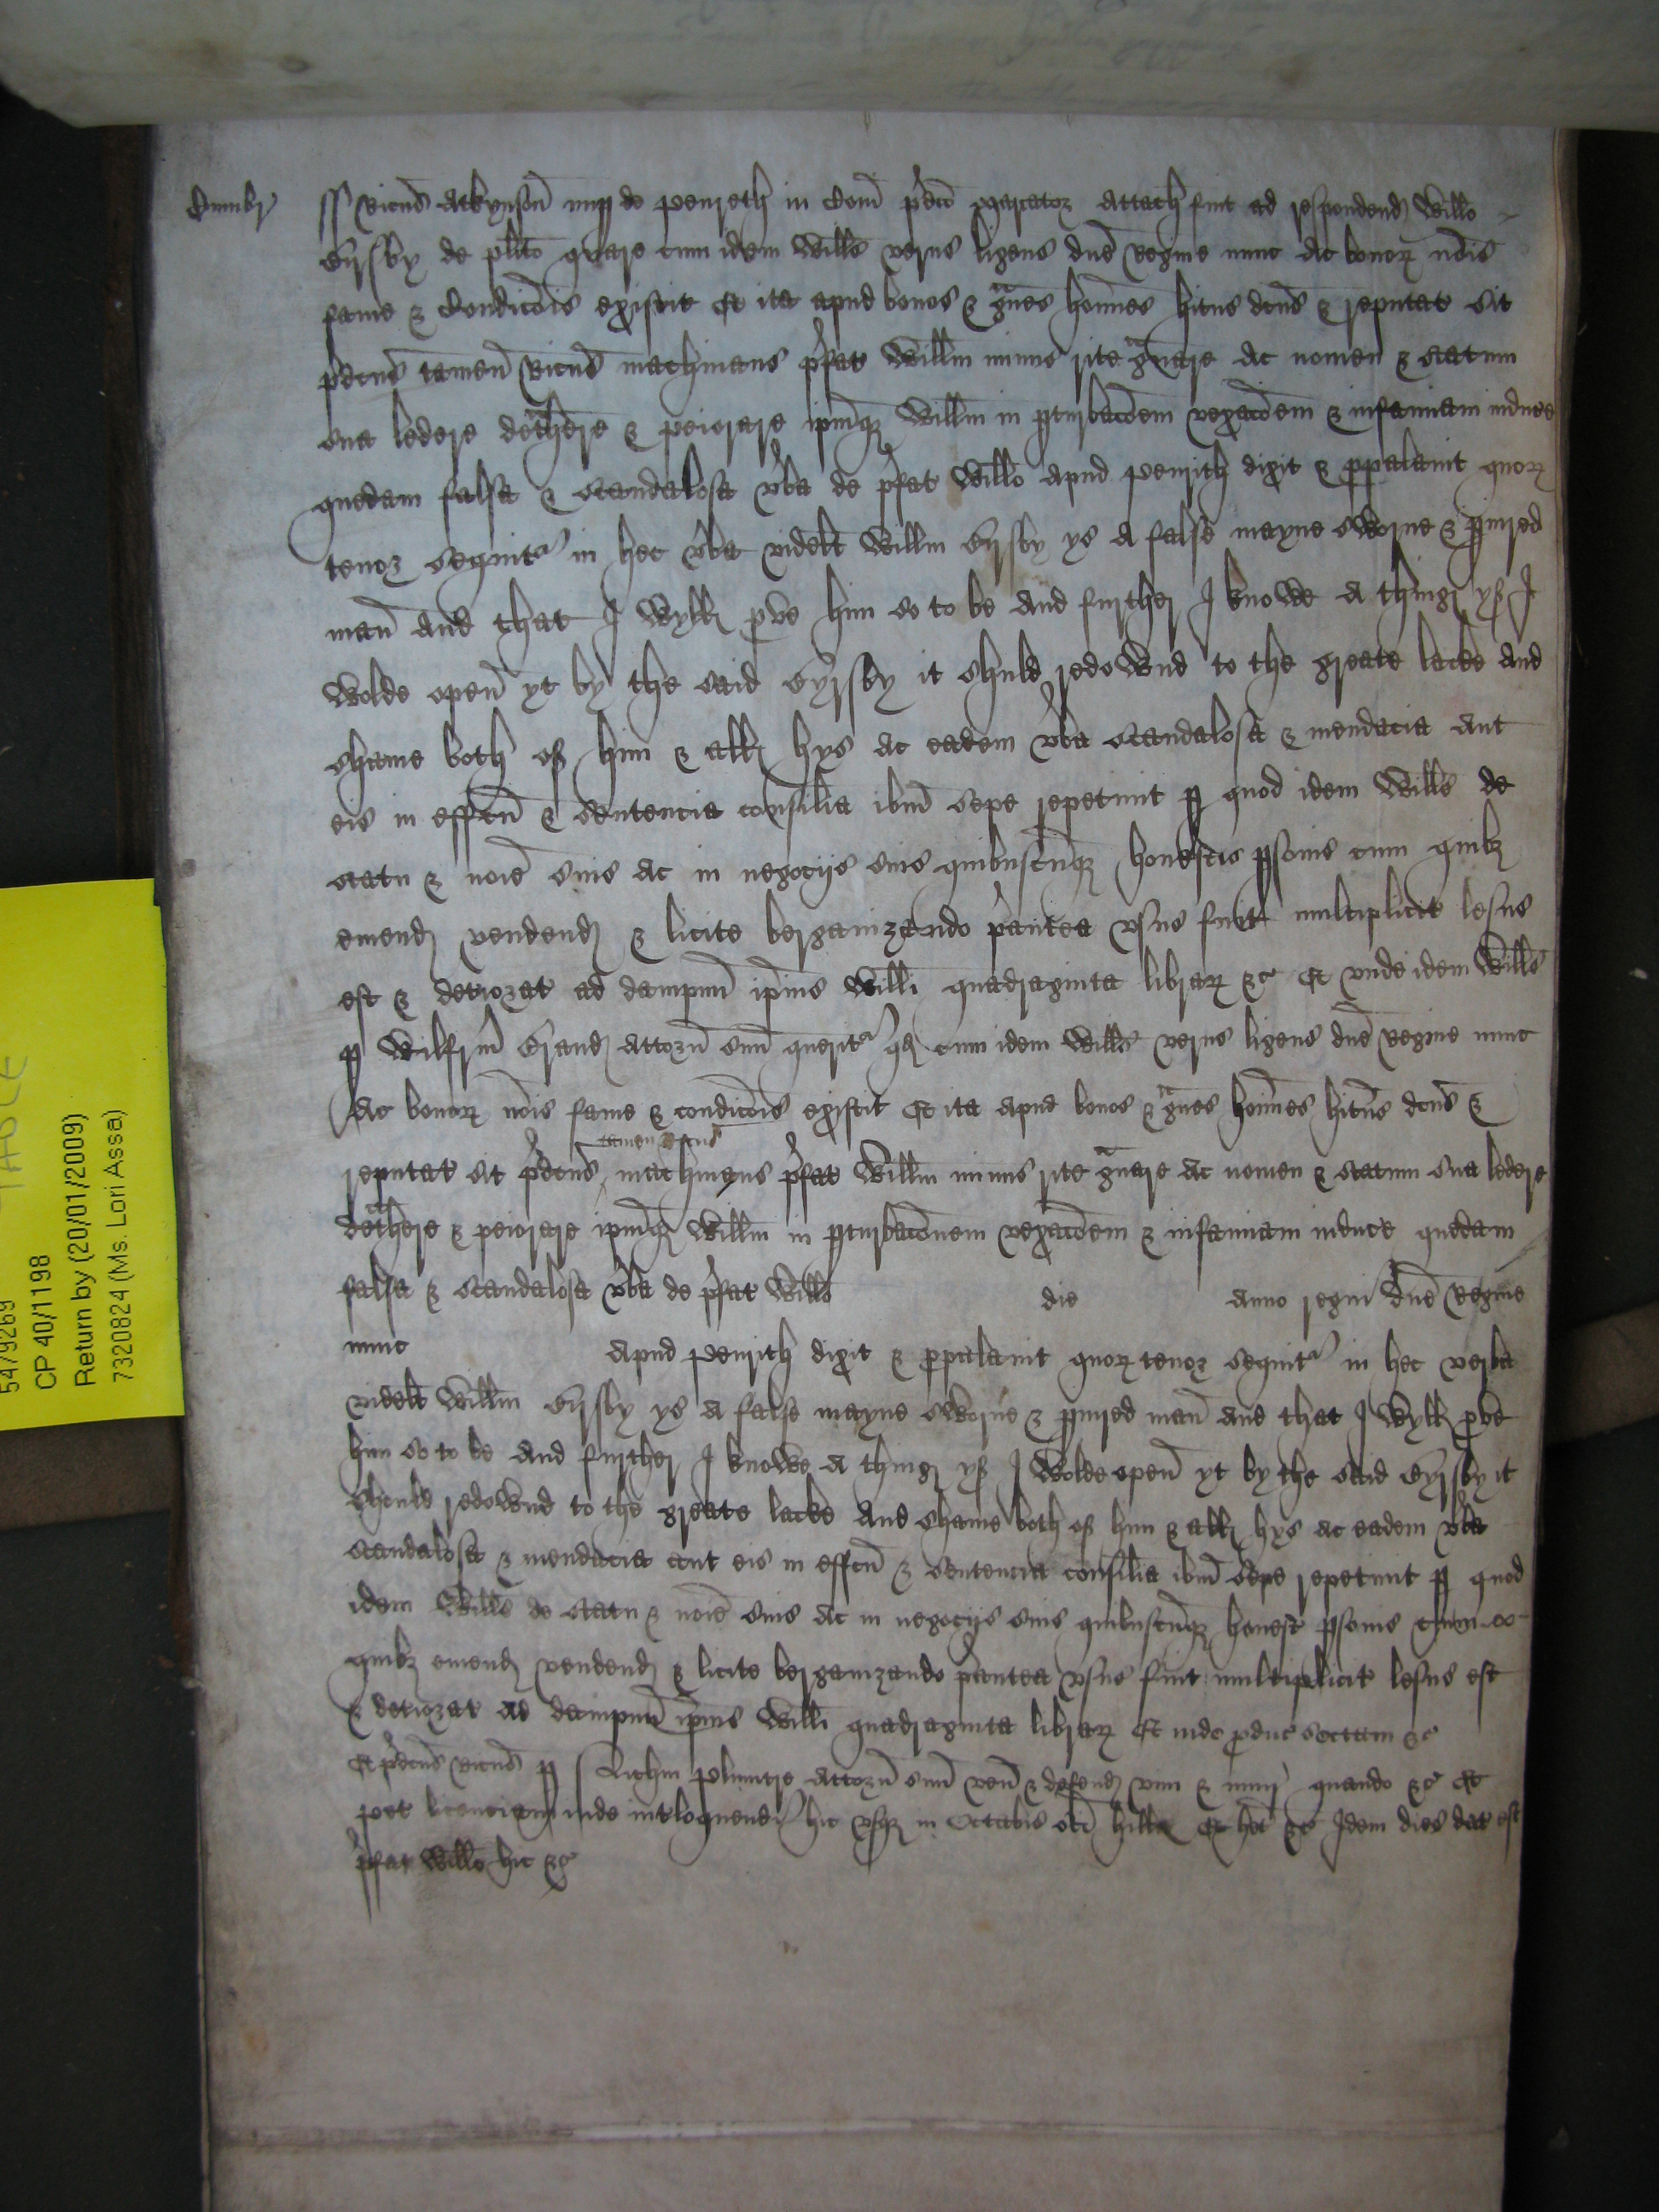 Cumbr ss Ricus Atkynson nup de Penreth in Com pdco Marcator attach fuit ad respondend Willo
Gyrsby de plito quare cum idem Wills verus ligeus dne Regine nunc ac bonor nois
fame & Condicois existit Et ita apud bonos & gues hoines hitus dcus & reputat sit
pdcus tamen Ricus machinans pfat Willm minus rite gvare ac nomen & statum
sua ledere dethere & peiorare ipmq Willm in pturbacoem vexacoem & infamiam induce
quedam falsa & scandalosa vba de pfat Willo apud Penrith dixit & ppalavit quor
tenor sequit in hec vba videlt Willm Gyrsby ys a false mayne sworne & piured
man and that I wyll pve him so to be and further I knowe a thing yf I
wolde open yt by the said Gyrsby it shuld redownd to the greate lacke and
shame both of him & all hys ac eadem vba scandalosa & mendacia aut
eis in effcu & sentencia consilia ibm sepe repetiuit p quod idem Wills de
statu & noie suis ac in negocijs suis quibuscumq honestis psonis cum quibz
emend vendend & licite berganizando pantea usus fuit multiplicit lesus
est & deriorat ad dampnu ipius Willi quadraginta librar &c Et unde idem Wills
p Wilfrm Grand attorn suu querit qd cum idem Wills verus ligeus dne Regine nunc
ac bonor nois fame & condicois existit Et ita apud bonos & gues hoines hitus dcus &
reputat sit pdcus tamen Ricus machinans pfat Willm minus rite gvare ac nomen & statum sua ledere
dethere & peiorare ipmq Willm in pturbaconem vexacoem & infamiam induce quedam
falsa & scandalosa vba de pfat Willo die anno regni dne Regine
nunc apud Penrith dixit & ppalavit quor tenor sequit in hec verba
videlt Willm Gyrsby ys a false mayne sworne & piured man and that I wyll pve
him so to be and further I knowe a thing yf I wolde open yt by the said Gyrsby it
should redownd to the greate lacke and shame both of him & all hys ac eadem vba
scandalosa & mendacia aut eis in effcu & sentencia consilia ibm sepe repetiuit p quod
idem Wills de statu & noie suis ac in negocijs suis quibuscumq honest psonis cum
quibz emend vendend & licite berganizando pantea usus fuit multiplicit lesus est
& deriorat ad dampnu ipius Willi quadraginta librar Et inde pduc sectam &c
Et pdcus Ricus p attorn suu ven & defend vim & iniur quando &c Et
pet licenciam inde intloquendi hic usq in Octabis sci Hillar Et het &c Idem dies dat est
pfat Willo hic &c
5479269
CP 40/1198
Return by (20/01/2009)
7320824 (Ms. Lori Assa)